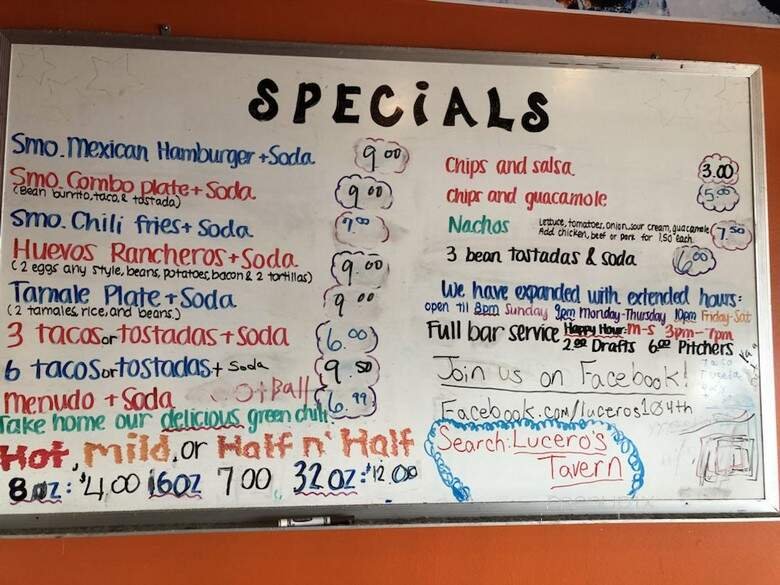 SPECiALS
Smo. Mexican Hamburger + Soda 9.00
Smo. Combo plate + Soda 9.00
(Bean burrito, taco, & tostada)
Smo. Chili fries + Soda 9.00
Huevos Rancheros + Soda 9.00
(2 eggs any style, beans, potatoes, bacon & 2 tortillas)
Tamale Plate + Soda 9.00
(2 tamales, rice, and beans)
3 tacos or tostadas + soda 6.00
6 tacos or tostadas + Soda 9.50
menudo + Soda 6.99
Take home our delicious green chili
Hot, mild, or Half n' Half
8oz: $4.00 16oz 7.00 32oz: $12.00
Chips and salsa 3.00
Chips and guacamole 5.00
Nachos Lettuce, tomatoes, onion, sour cream, guacamole 7.50
Add chicken, beef or pork for 1.50 each
3 bean tostadas & soda 6.00
We have expanded with extended hours:
open til 8pm Sunday 9pm Monday-Thursday 10pm Friday-Sat
Full bar service Happy Hour: m-s 3pm-7pm
2.00 Drafts 6.00 Pitchers
Join us on Facebook!
Facebook.com/luceros104th
Search: Lucero's
Tavern